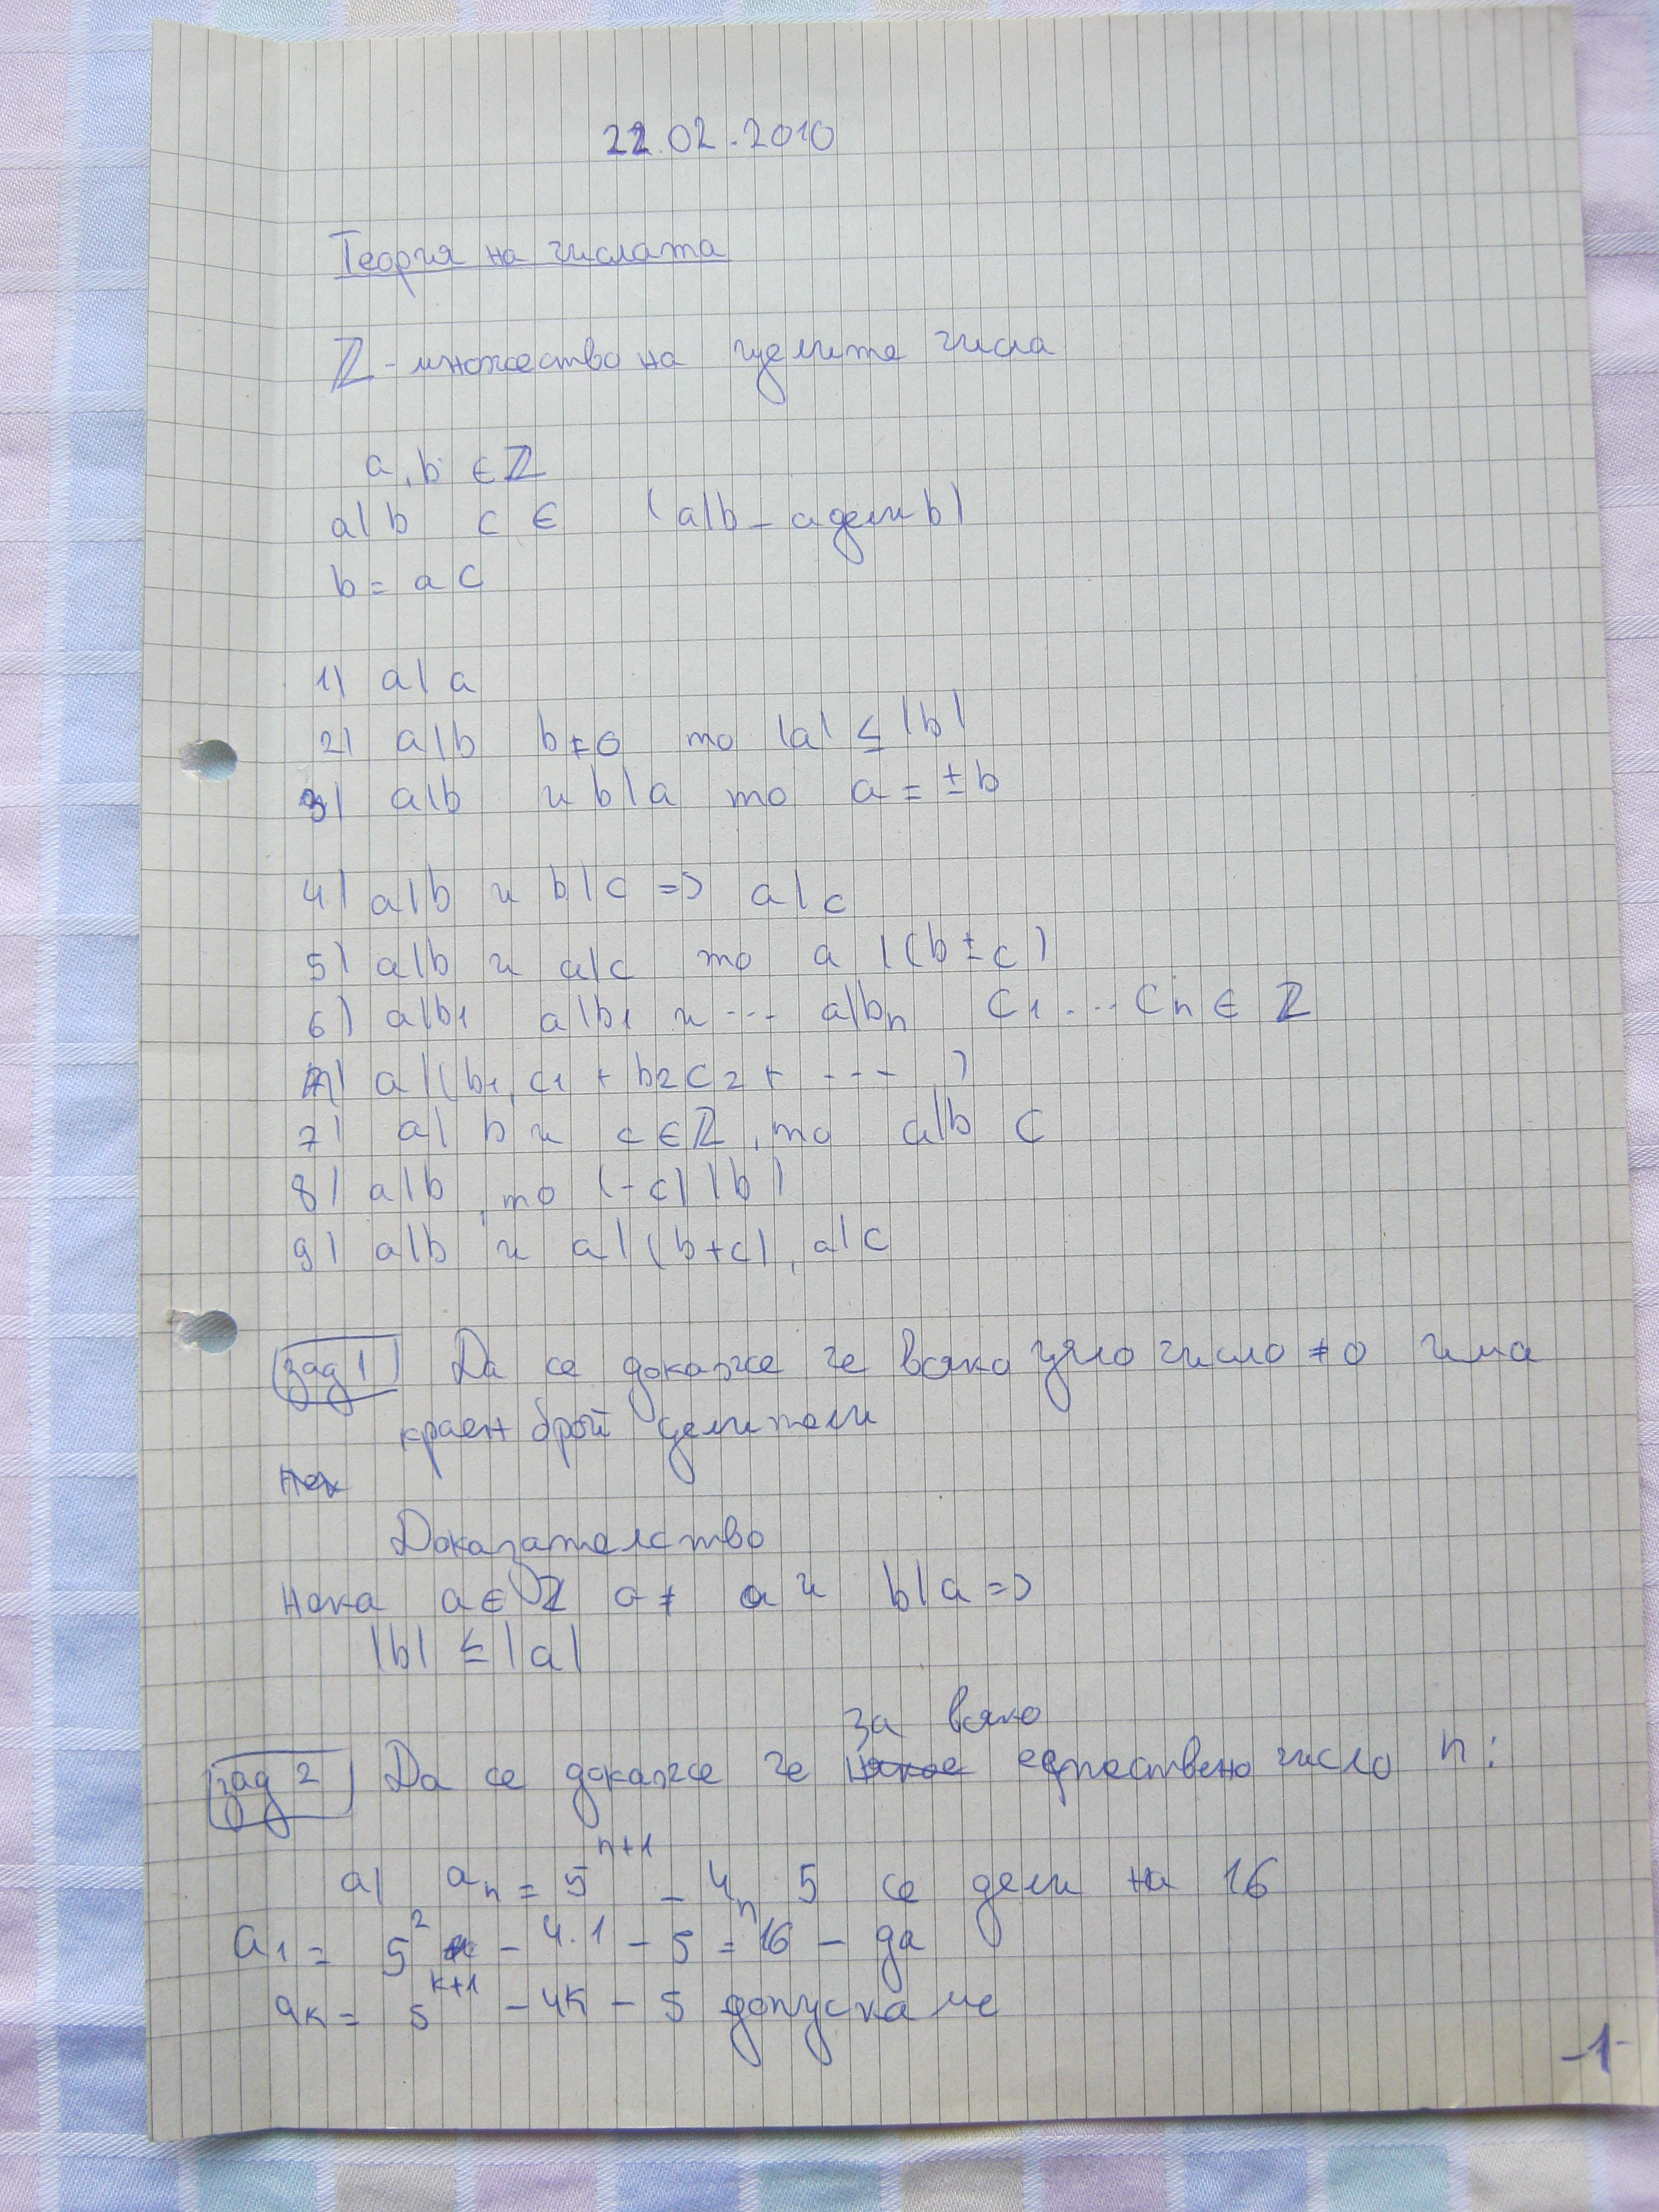 22.02.2010
Теория на числата
ℤ - множество на целите числа
a, b ∈ ℤ
a|b c ∈ (a|b - a дели b)
b = a c
1) a|a
2) a|b b≠0 то |a| ≤ |b|
3) a|b и b|a то a = ±b
4) a|b и b|c => a|c
5) a|b и a|c то a|(b±c)
6) a|b1 a|b1 и --- a|bn C1 ... Cn ∈ ℤ
a|(b1, c1 + b2c2 + ---- )
7) a|b и c∈ℤ, то a|b c
8) a|b, то (-c)|b)
9) a|b и a|(b+c), a|c
зад 1 Да се докаже че всяко цяло число ≠ 0 има
краен брой делители
Доказателство
Нека a∈ℤ a≠ a и b|a =>
|b| ≤ |a|
за всяко
зад 2 Да се докаже че естествено число n:
а) an = 5^(n+1) - 4n 5 се дели на 16
a1 = 5² - 4.1 - 5 = 16 - да
ak = 5^(k+1) - 4k - 5 допускаме
-1-